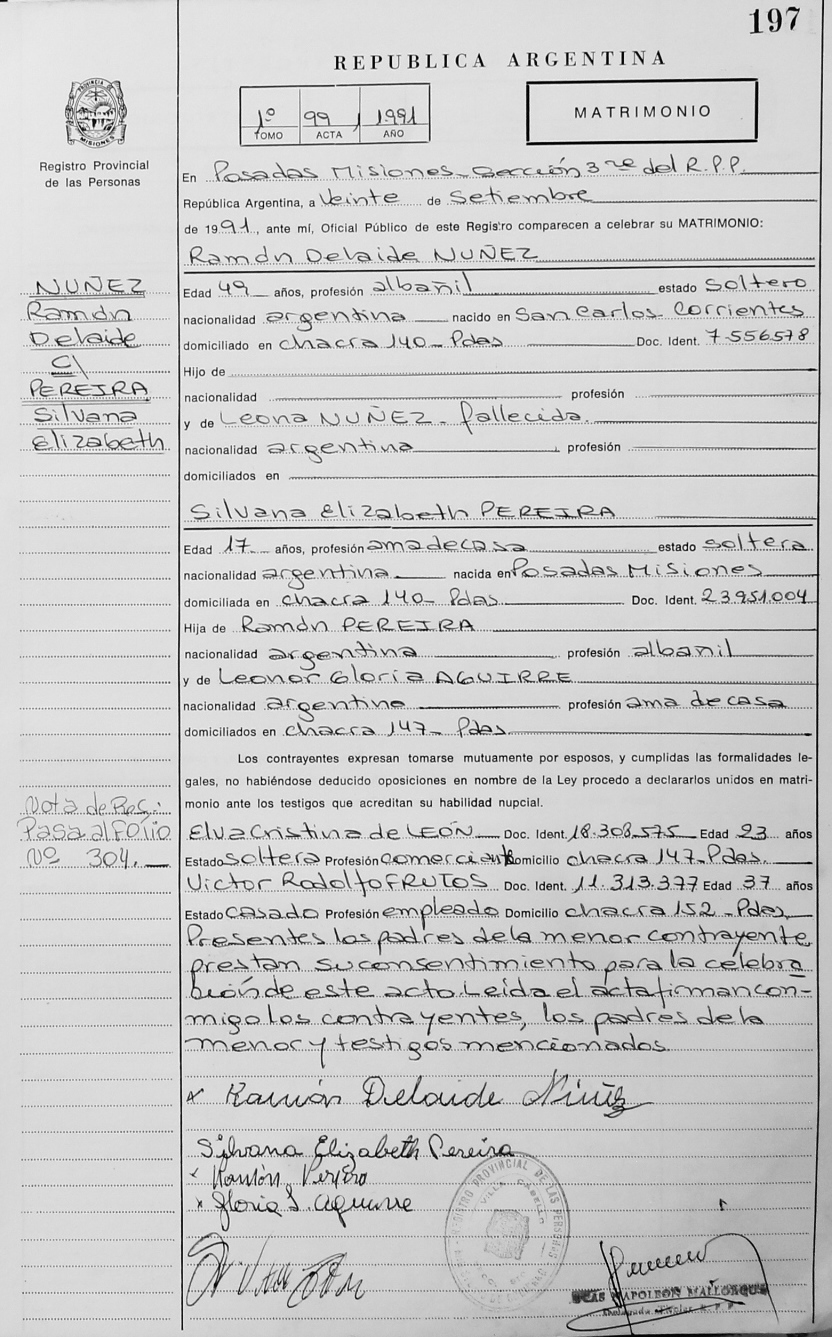 197
REPUBLICA ARGENTINA
PROVINCIA DE MISIONES
1º 99 1991
TOMO ACTA AÑO
MATRIMONIO
Registro Provincial
de las Personas
En Posadas Misiones - Sección 3ra del R.P.P.
República Argentina, a Veinte de Setiembre
de 1991, ante mí, Oficial Público de este Registro comparecen a celebrar su MATRIMONIO:
Ramón Delaide NUÑEZ
NUÑEZ
Ramón
Delaide
C/
PEREIRA
Silvana
Elizabeth
Edad 49 años, profesión albañil estado soltero
nacionalidad argentina nacido en San Carlos - Corrientes
domiciliado en chacra 140 - Pdas Doc. Ident. 7.556.578
Hijo de
nacionalidad profesión
y de Leona NUÑEZ - fallecida.
nacionalidad argentina profesión
domiciliados en
Silvana Elizabeth PEREIRA
Edad 17 años, profesión ama de casa estado soltera
nacionalidad argentina nacida en Posadas Misiones
domiciliada en chacra 140 - Pdas Doc. Ident. 23.951.004
Hija de Ramón PEREIRA
nacionalidad argentina profesión albañil
y de Leonor Gloria AGUIRRE
nacionalidad argentina profesión ama de casa
domiciliados en chacra 147 - Pdas.
Los contrayentes expresan tomarse mutuamente por esposos, y cumplidas las formalidades le-
gales, no habiéndose deducido oposiciones en nombre de la Ley procedo a declararlos unidos en matri-
monio ante los testigos que acreditan su habilidad nupcial.
Nota de Ref.:
Pasa al Folio
Nº 304.
Elva Cristina de LEÓN Doc. Ident. 18.308.575 Edad 23 años
Estado soltera Profesión comerciante Domicilio chacra 147 - Pdas.
Victor Rodolfo FRUTOS Doc. Ident. 11.313.377 Edad 37 años
Estado casado Profesión empleado Domicilio chacra 152 - Pdas.
Presentes los padres de la menor contrayente,
prestan su consentimiento para la celebra
ción de este acto. Leída el acta firman con-
migo los contrayentes, los padres de la
menor y testigos mencionados.
x Ramón Delaide Núñez
Silvana Elizabeth Pereira
x Ramón
x Gloria L. Aguirre
REGISTRO PROVINCIAL DE LAS PERSONAS
VILLA CABELLO
NAPOLEON MALLORQUIN